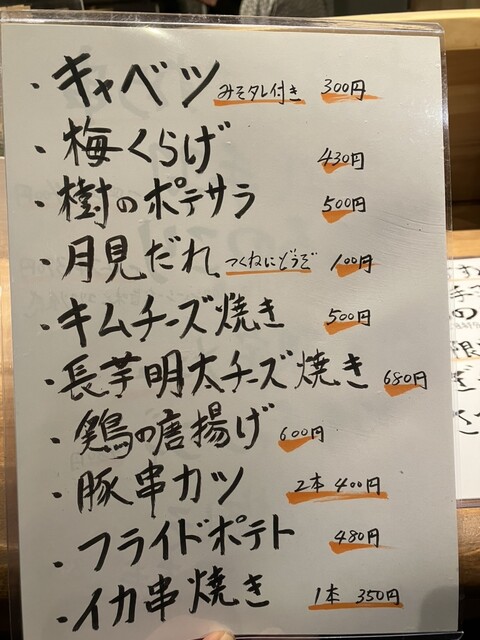 ・キャベツ みそタレ付き 300円
・梅くらげ 430円
・樹のポテサラ 500円
・月見だれ つくねにどうぞ 100円
・キムチーズ焼き 500円
・長芋明太チーズ焼き 680円
・鶏の唐揚げ 600円
・豚串カツ 2本 400円
・フライドポテト 480円
・イカ串焼き 1本 350円